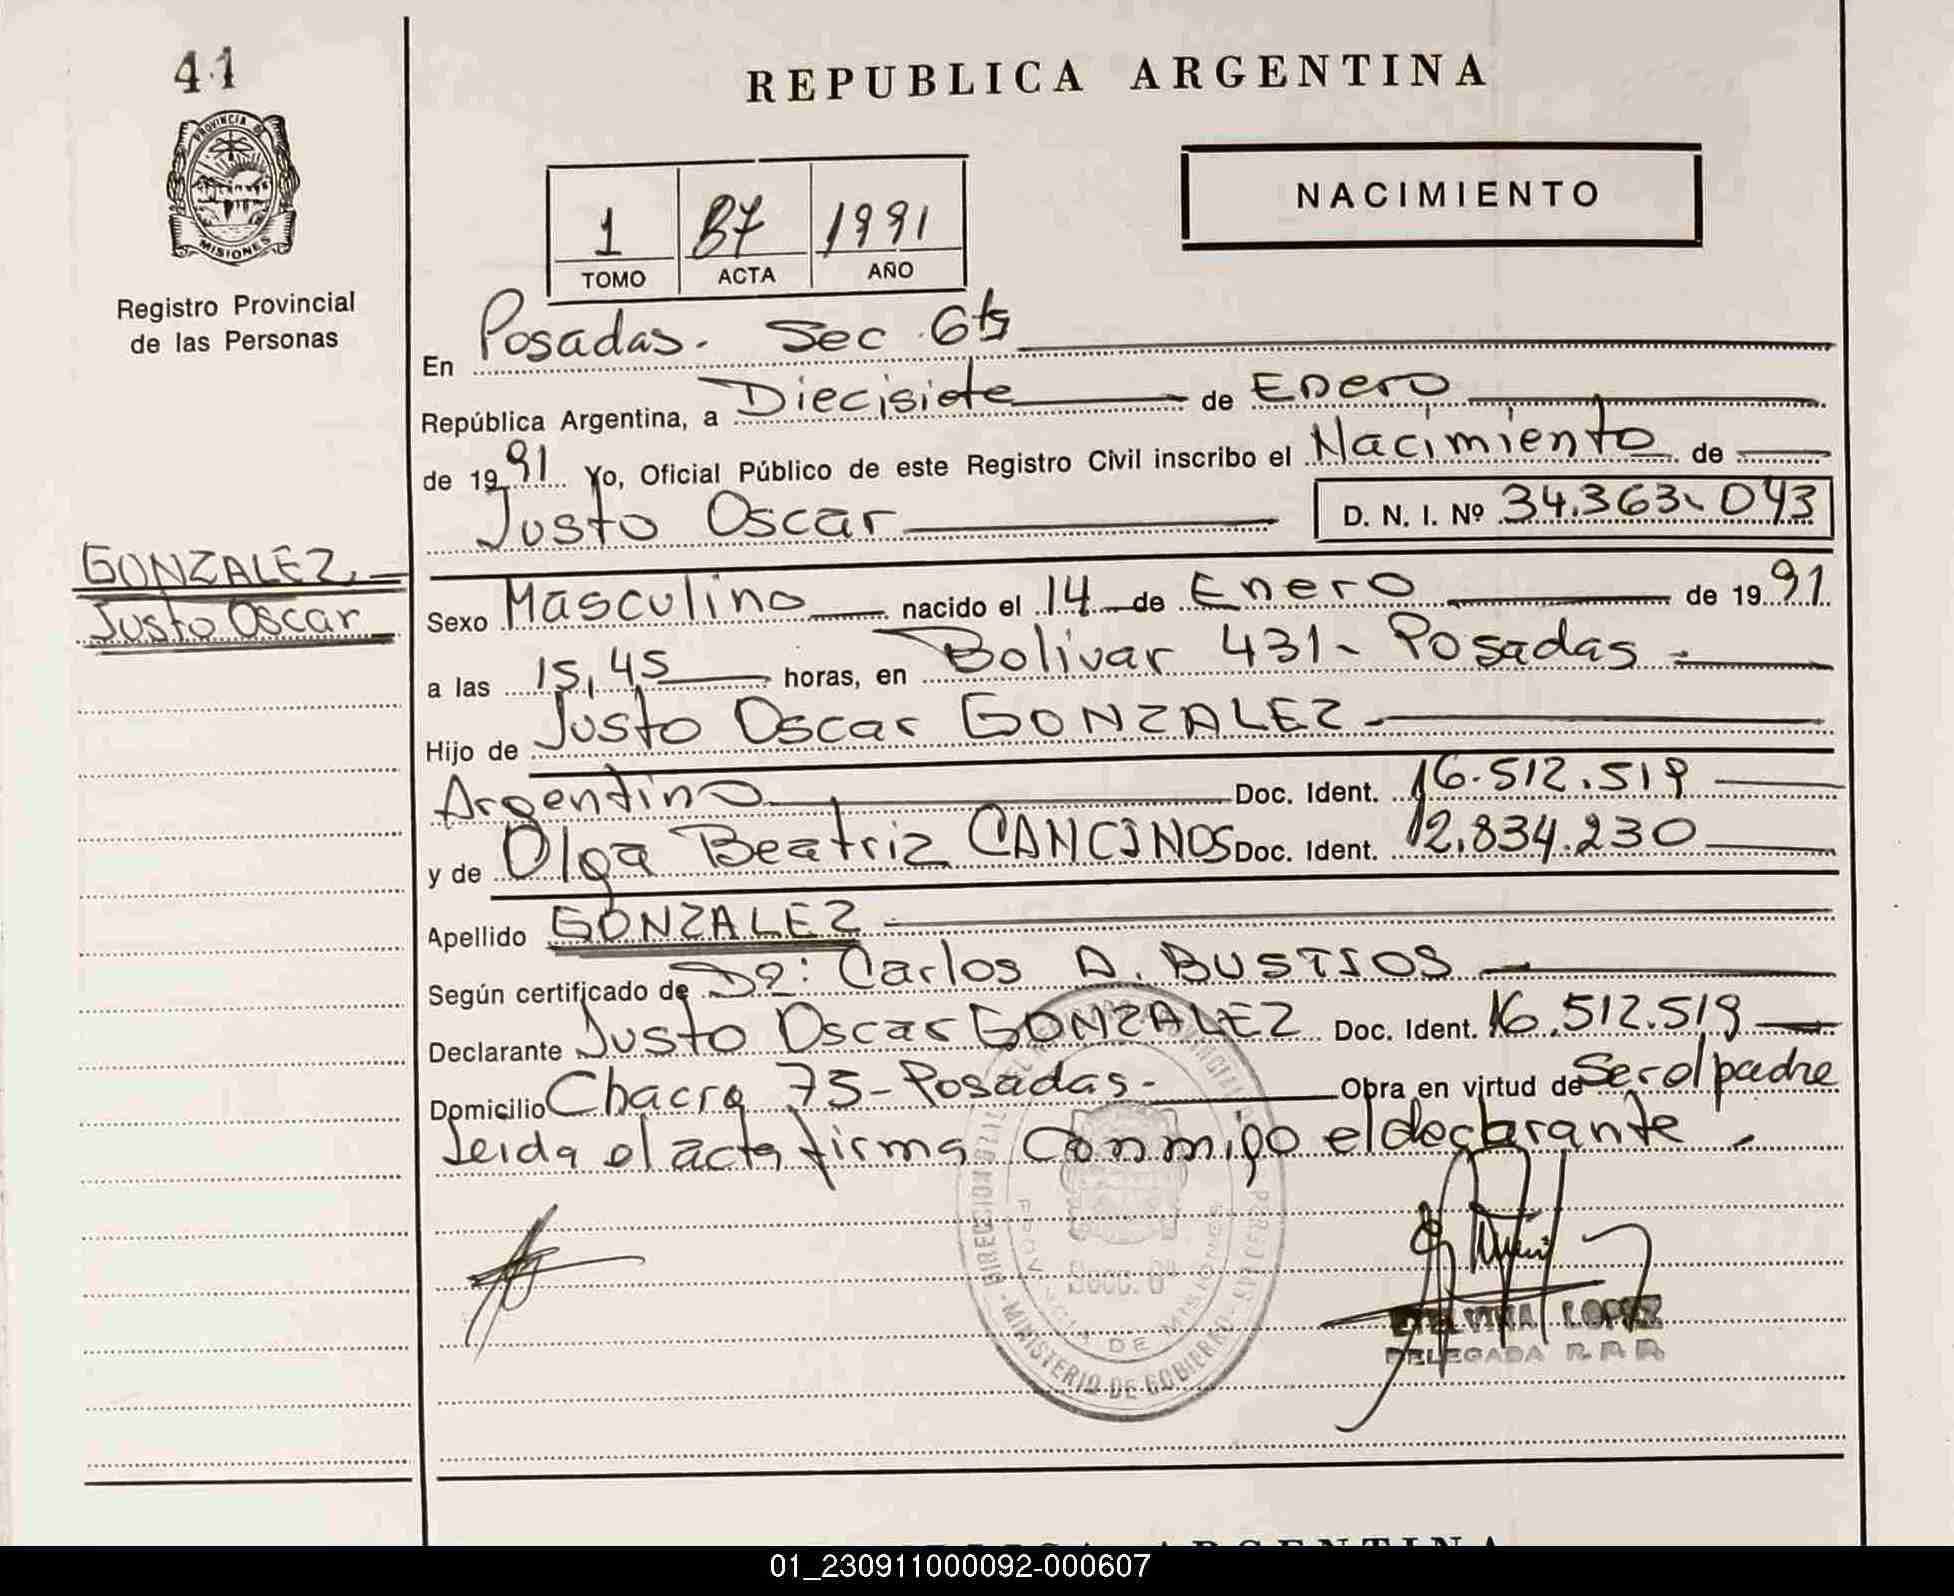 41
REPUBLICA ARGENTINA
PROVINCIA DE
MISIONES
NACIMIENTO
1 87 1991
TOMO ACTA AÑO
Registro Provincial
de las Personas
En Posadas. Sec 6ta
República Argentina, a Diecisiete de Enero
de 1991 Yo, Oficial Público de este Registro Civil inscribo el Nacimiento de
Justo Oscar D. N. I. Nº 34.363.043
GONZALEZ
Justo Oscar
Sexo Masculino nacido el 14 de Enero de 1991
a las 15,45 horas, en Bolivar 431 - Posadas
Hijo de Justo Oscar GONZALEZ
Argentino Doc. Ident. 16.512.519
y de Olga Beatriz CANCINOS Doc. Ident. 12.834.230
Apellido GONZALEZ
Según certificado de Carlos A. BUSTIOS
Declarante Justo Oscar GONZALEZ Doc. Ident. 16.512.519
Domicilio Chacra 75 - Posadas - Obra en virtud de Ser el padre
Leida el acta firma conmigo el declarante.
DIRECCION
PROVINCIA DE MISIONES
Secc. 6ª
MINISTERIO DE GOBIERNO
ETELVINA LOPEZ
DELEGADA R.P.P.
01_230911000092-000607